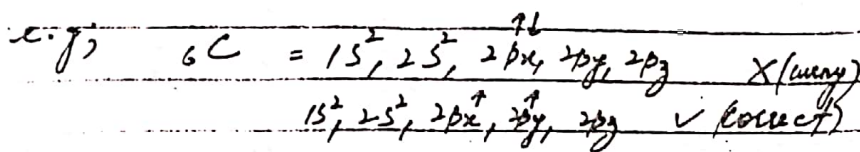 e.g; 6C = 1S², 2S², 2px↑↓, 2py, 2pz X (wrong)
1S², 2S², 2px↑, 2py↑, 2pz ✓ (correct)